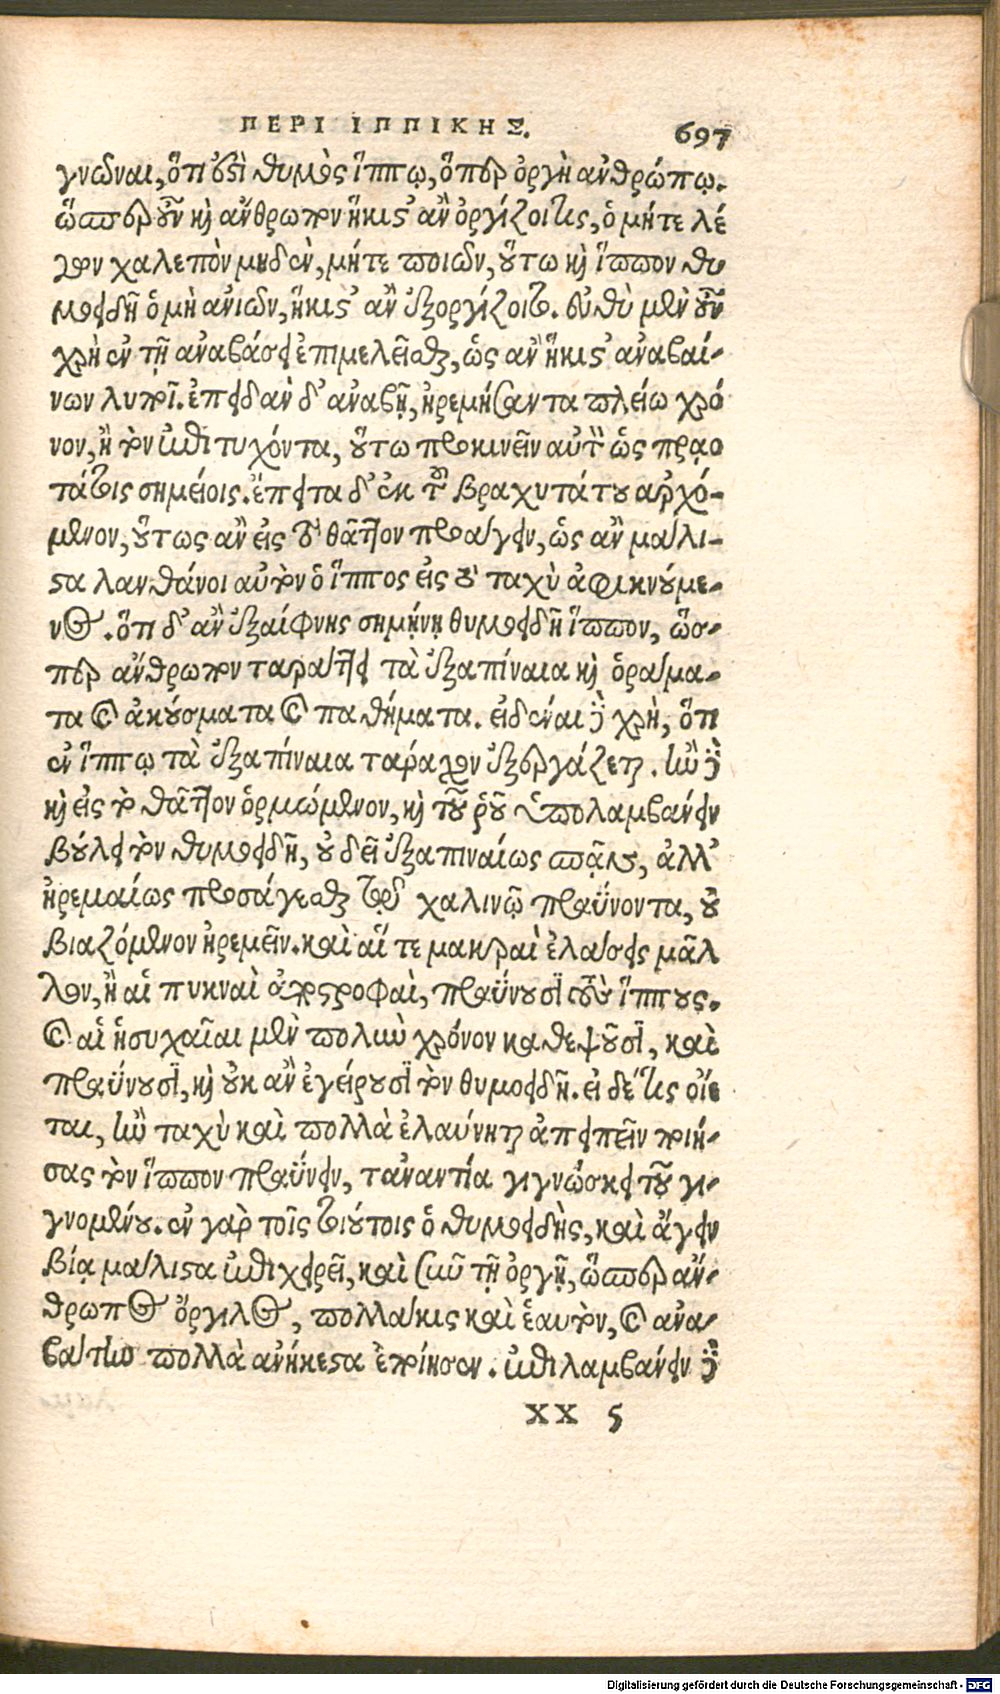 ΠΕΡΙ ΙΠΠΙΚΗΣ. 697
γνῶναι, ὅτι ἐστὶ θυμὸς ἵππῳ, ὅπερ ὀργὴ ἀνθρώπῳ.
ὥσπερ οὖν καὶ ἄνθρωπον ἥκιστ' ἂν ὀργίζοι τις, ὁ μήτε λέ
γων χαλεπὸν μηδὲν, μήτε ποιῶν, οὕτω καὶ ἵππον θυ
μοειδῆ ὁ μὴ ἀνιῶν, ἥκιστ' ἂν ἐξοργίζοιτο. εὐθὺ μὲν οὖν
χρὴ ἐν τῇ ἀναβάσει ἐπιμελεῖσθαι, ὡς ἂν ἥκιστ' ἀναβαί-
νων λυποῖ. ἐπειδὰν δ' ἀναβῇ, ἠρεμήσαντα πλείω χρό
νον, ἢ τὸν ἐπιτυχόντα, οὕτω προκινεῖν αὐτὸν ὡς πρᾳο
τάτοις σημείοις. ἔπειτα δ' ἐκ τοῦ βραχυτάτου ἀρχό-
μενον, οὕτως ἂν εἰς τὸ θᾶττον προάγειν, ὡς ἂν μάλι-
στα λανθάνοι αὐτὸν ὁ ἵππος εἰς τὸ ταχὺ ἀφικνούμε-
νος. ὅτι δ' ἂν ἐξαίφνης σημήνῃ θυμοειδῆ ἵππον, ὥσ-
περ ἄνθρωπον ταράττει τὰ ἐξαπίναια καὶ ὁράμα-
τα καὶ ἀκούσματα καὶ παθήματα. εἰδέναι δὲ χρὴ, ὅτι
ἐν ἵππῳ τὰ ἐξαπίναια τάραχον ἐξεργάζεται. ἢν δὲ
καὶ εἰς τὸ θᾶττον ὁρμώμενον, καὶ τοῦ ῥοῦ ὑπολαμβάνειν
βούλει τὸν θυμοειδῆ, οὐ δεῖ ἐξαπιναίως σπᾷν, ἀλλ'
ἠρεμαίως προσάγεσθαι τῷ χαλινῷ πραΰνοντα, οὐ
βιαζόμενον ἠρεμεῖν. καὶ αἵ τε μακραὶ ἐλάσεις μᾶλ
λον, ἢ αἱ πυκναὶ ἀποστροφαὶ, πραΰνουσι τοὺς ἵππους.
καὶ αἱ ἡσυχαῖαι μὲν πολὺν χρόνον καθεψοῦσι, καὶ
πραΰνουσι, καὶ οὐκ ἂν ἐγείρουσι τὸν θυμοειδῆ. εἰ δέ τις οἴε
ται, ἢν ταχὺ καὶ πολλὰ ἐλαύνηται ἀπειπεῖν ποιή-
σας τὸν ἵππον πραΰνειν, τἀναντία γιγνώσκει τοῦ γι-
γνομένου. ἐν γὰρ τοῖς τοιούτοις ὁ θυμοειδὴς, καὶ ἄγειν
βίᾳ μάλιστα ἐπιχειρεῖ, καὶ σὺν τῇ ὀργῇ, ὥσπερ ἄν-
θρωπος ὀργίλος, πολλάκις καὶ ἑαυτὸν, καὶ ἀνα-
βάτην πολλὰ ἀνήκεστα ἐποίησεν. ἐπιλαμβάνειν δὲ
XX 5
Digitalisierung gefördert durch die Deutsche Forschungsgemeinschaft - DFG